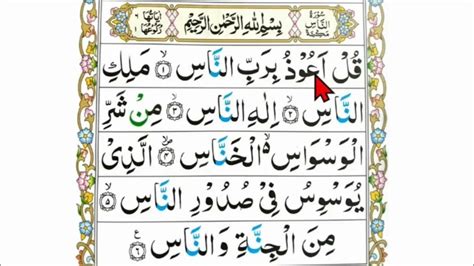 سُوْرَةُ النَّاسِ مَكِّيَّةٌ
بِسْمِ اللهِ الرَّحْمٰنِ الرَّحِيْمِ
اٰيَاتُهَا ٦ رُكُوْعُهَا ١
قُلْ اَعُوْذُ بِرَبِّ النَّاسِ ۙ﴿۱﴾ مَلِكِ
النَّاسِ ۙ﴿۲﴾ اِلٰهِ النَّاسِ ۙ﴿۳﴾ مِنْ شَرِّ
الْوَسْوَاسِ ۵ۙ الْخَنَّاسِ ۪ۙ﴿۴﴾ الَّذِيْ
يُوَسْوِسُ فِيْ صُدُوْرِ النَّاسِ ۙ﴿۵﴾
مِنَ الْجِنَّةِ وَ النَّاسِ ﴿۶﴾ ع